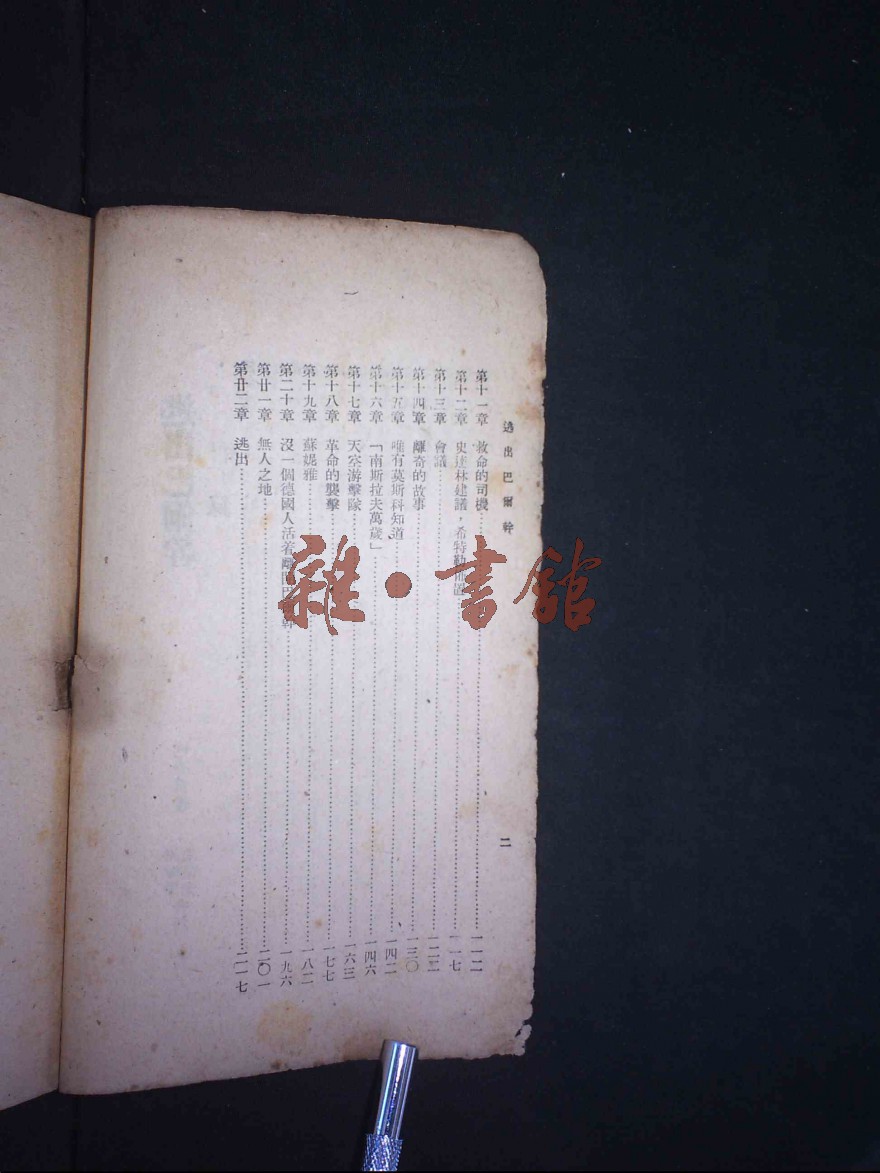 逃出巴爾幹
二
第十一章　救命的司機……一一二
第十二章　史達林建議，希特勒……一一七
第十三章　會議……一二三
第十四章　離奇的故事……一三〇
第十五章　唯有莫斯科知道……一四二
第十六章　「南斯拉夫萬歲」……一四六
第十七章　天空游擊隊……一六三
第十八章　革命的襲擊……一七七
第十九章　蘇妮雅……一八二
第二十章　沒一個德國人活着離開巴爾幹……一九六
第廿一章　無人之地……二〇一
第廿二章　逃出……二一七
雜·書館